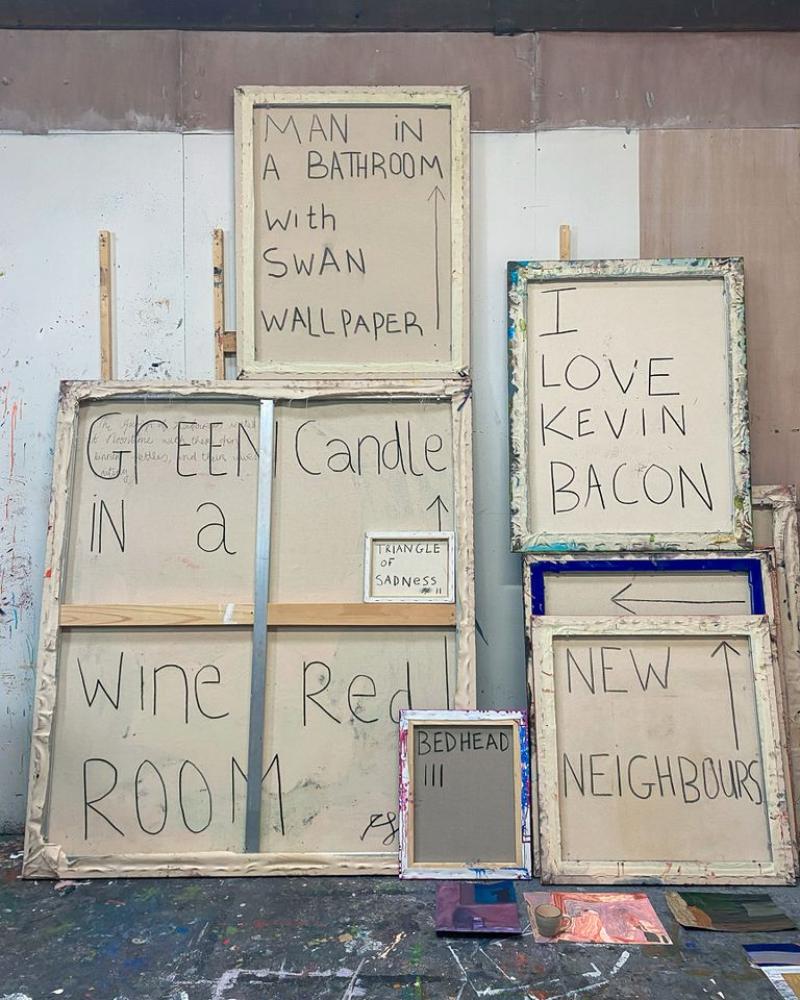 MAN iN
A BATHROOM
with
SWAN
WALLPAPER
I
LOVE
KEVIN
BACON
GrEEN Candle
IN a
TRIANGLE
OF
SADNESS II
Wine Red
ROOM
BEDHEAD
III
NEW
NEiGHBOURS